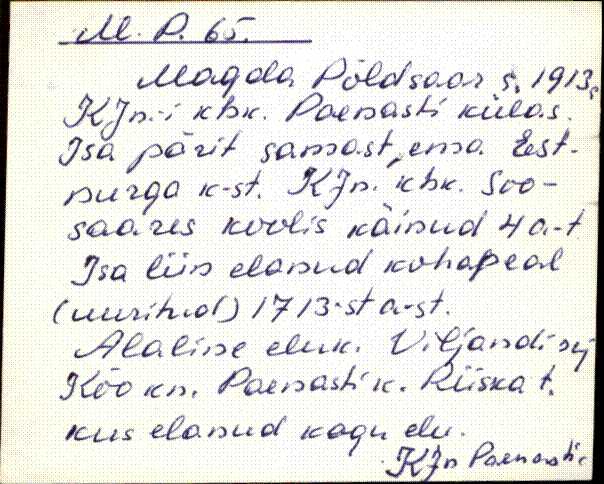 M. P. 65.
Magda Põldsaar s. 1913.
KJn.-i khk. Paenasti külas.
Isa pärit samast, ema Eest-
nurga k-st. KJn. khk. Soo-
saares koolis käinud 4 a-t.
Isa liin elanud kohapeal
(uuritud) 1713-st a-st.
Alaline eluk. Viljandi raj
Kõo kn. Paenasti k. Riiska t.
kus elanud kogu elu.
KJn Paenasti